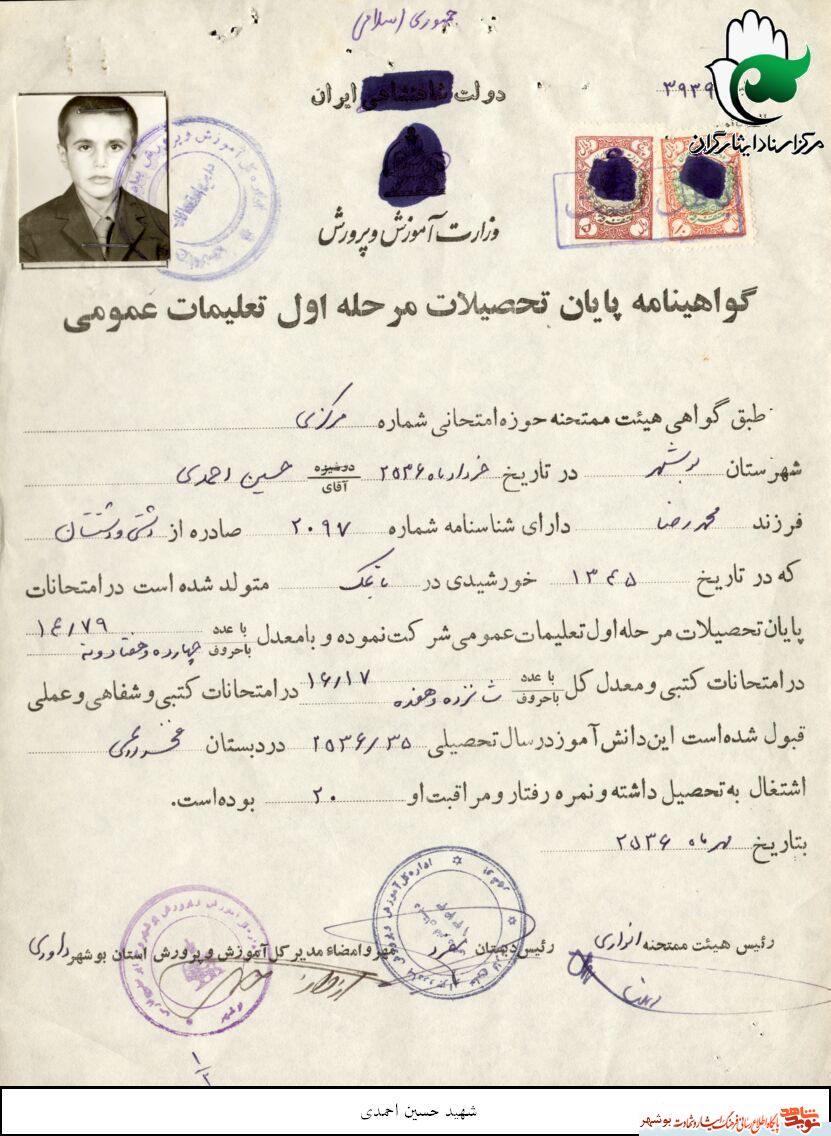 جمهوری اسلامی
دولت شاهنشاهی ایران
۳۹۳۹
مرکز اسناد ایثارگران
وزارت آموزش و پرورش
گواهینامه پایان تحصیلات مرحله اول تعلیمات عمومی
طبق گواهی هیئت ممتحنه حوزه امتحانی شماره مرکزی
شهرستان بوشهر در تاریخ خرداد ماه ۲۵۳۶ دوشیزه آقای حسین احمدی
فرزند محمد رضا دارای شناسنامه شماره ۲۰۹۷ صادره از دشتی و دشتستان
که در تاریخ ۱۳۴۵ خورشیدی در متولد شده است در امتحانات
پایان تحصیلات مرحله اول تعلیمات عمومی شرکت نموده و با معدل با عدد ۱۴/۷۹ باحروف چهارده و هفتاد و نه
در امتحانات کتبی و معدل کل با عدد ۱۶/۱۷ باحروف شانزده و هفده در امتحانات کتبی و شفاهی و عملی
قبول شده است این دانش آموز در سال تحصیلی ۲۵۳۶/۳۵ در دبستان
اشتغال به تحصیل داشته و نمره رفتار و مراقبت او ۲۰ بوده است.
بتاریخ مهر ماه ۲۵۳۶
رئیس هیئت ممتحنه انواری
رئیس دبستان
مهر و امضاء مدیر کل آموزش و پرورش استان بوشهر داوری
شهید حسین احمدی
نوید شاهد
پایگاه اطلاع رسانی فرهنگ ایثار و شهادت بوشهر